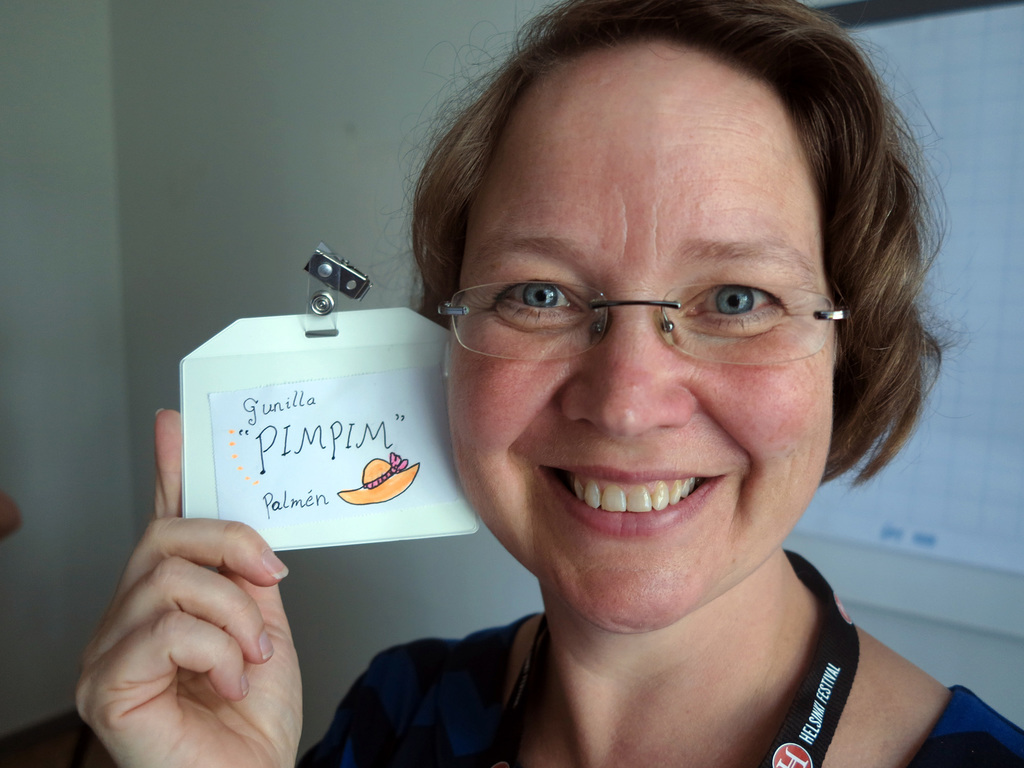 Gunilla
"PIMPIM"
Palmén
H HELSINKI FESTIVAL